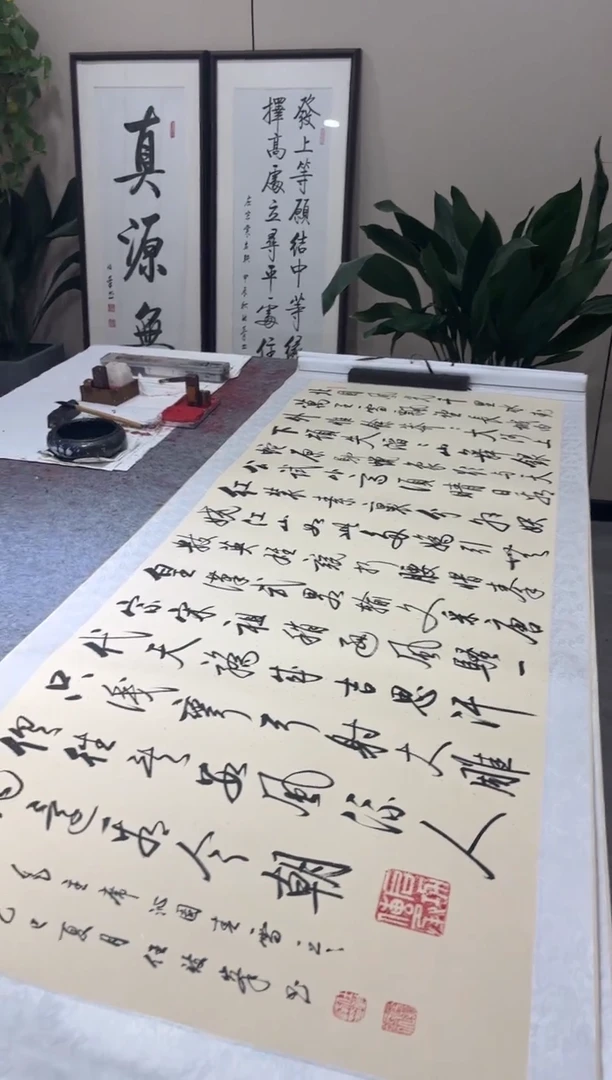 真源無
發上等願結中等緣
擇高處立尋平處住
北國風光千里冰封
萬里雪飄望長城內
外惟餘莽莽大河上
下頓失滔滔山舞銀
蛇原馳蠟象欲與天
公試比高須晴日看
紅裝素裹分外妖
嬈江山如此多嬌引無
數英雄競折腰惜秦
皇漢武略輸文采唐
宗宋祖稍遜風騷一
代天驕成吉思汗
只識彎弓射大雕
俱往矣數風流人
物還看今朝
毛主席沁園春雪
乙巳夏月任